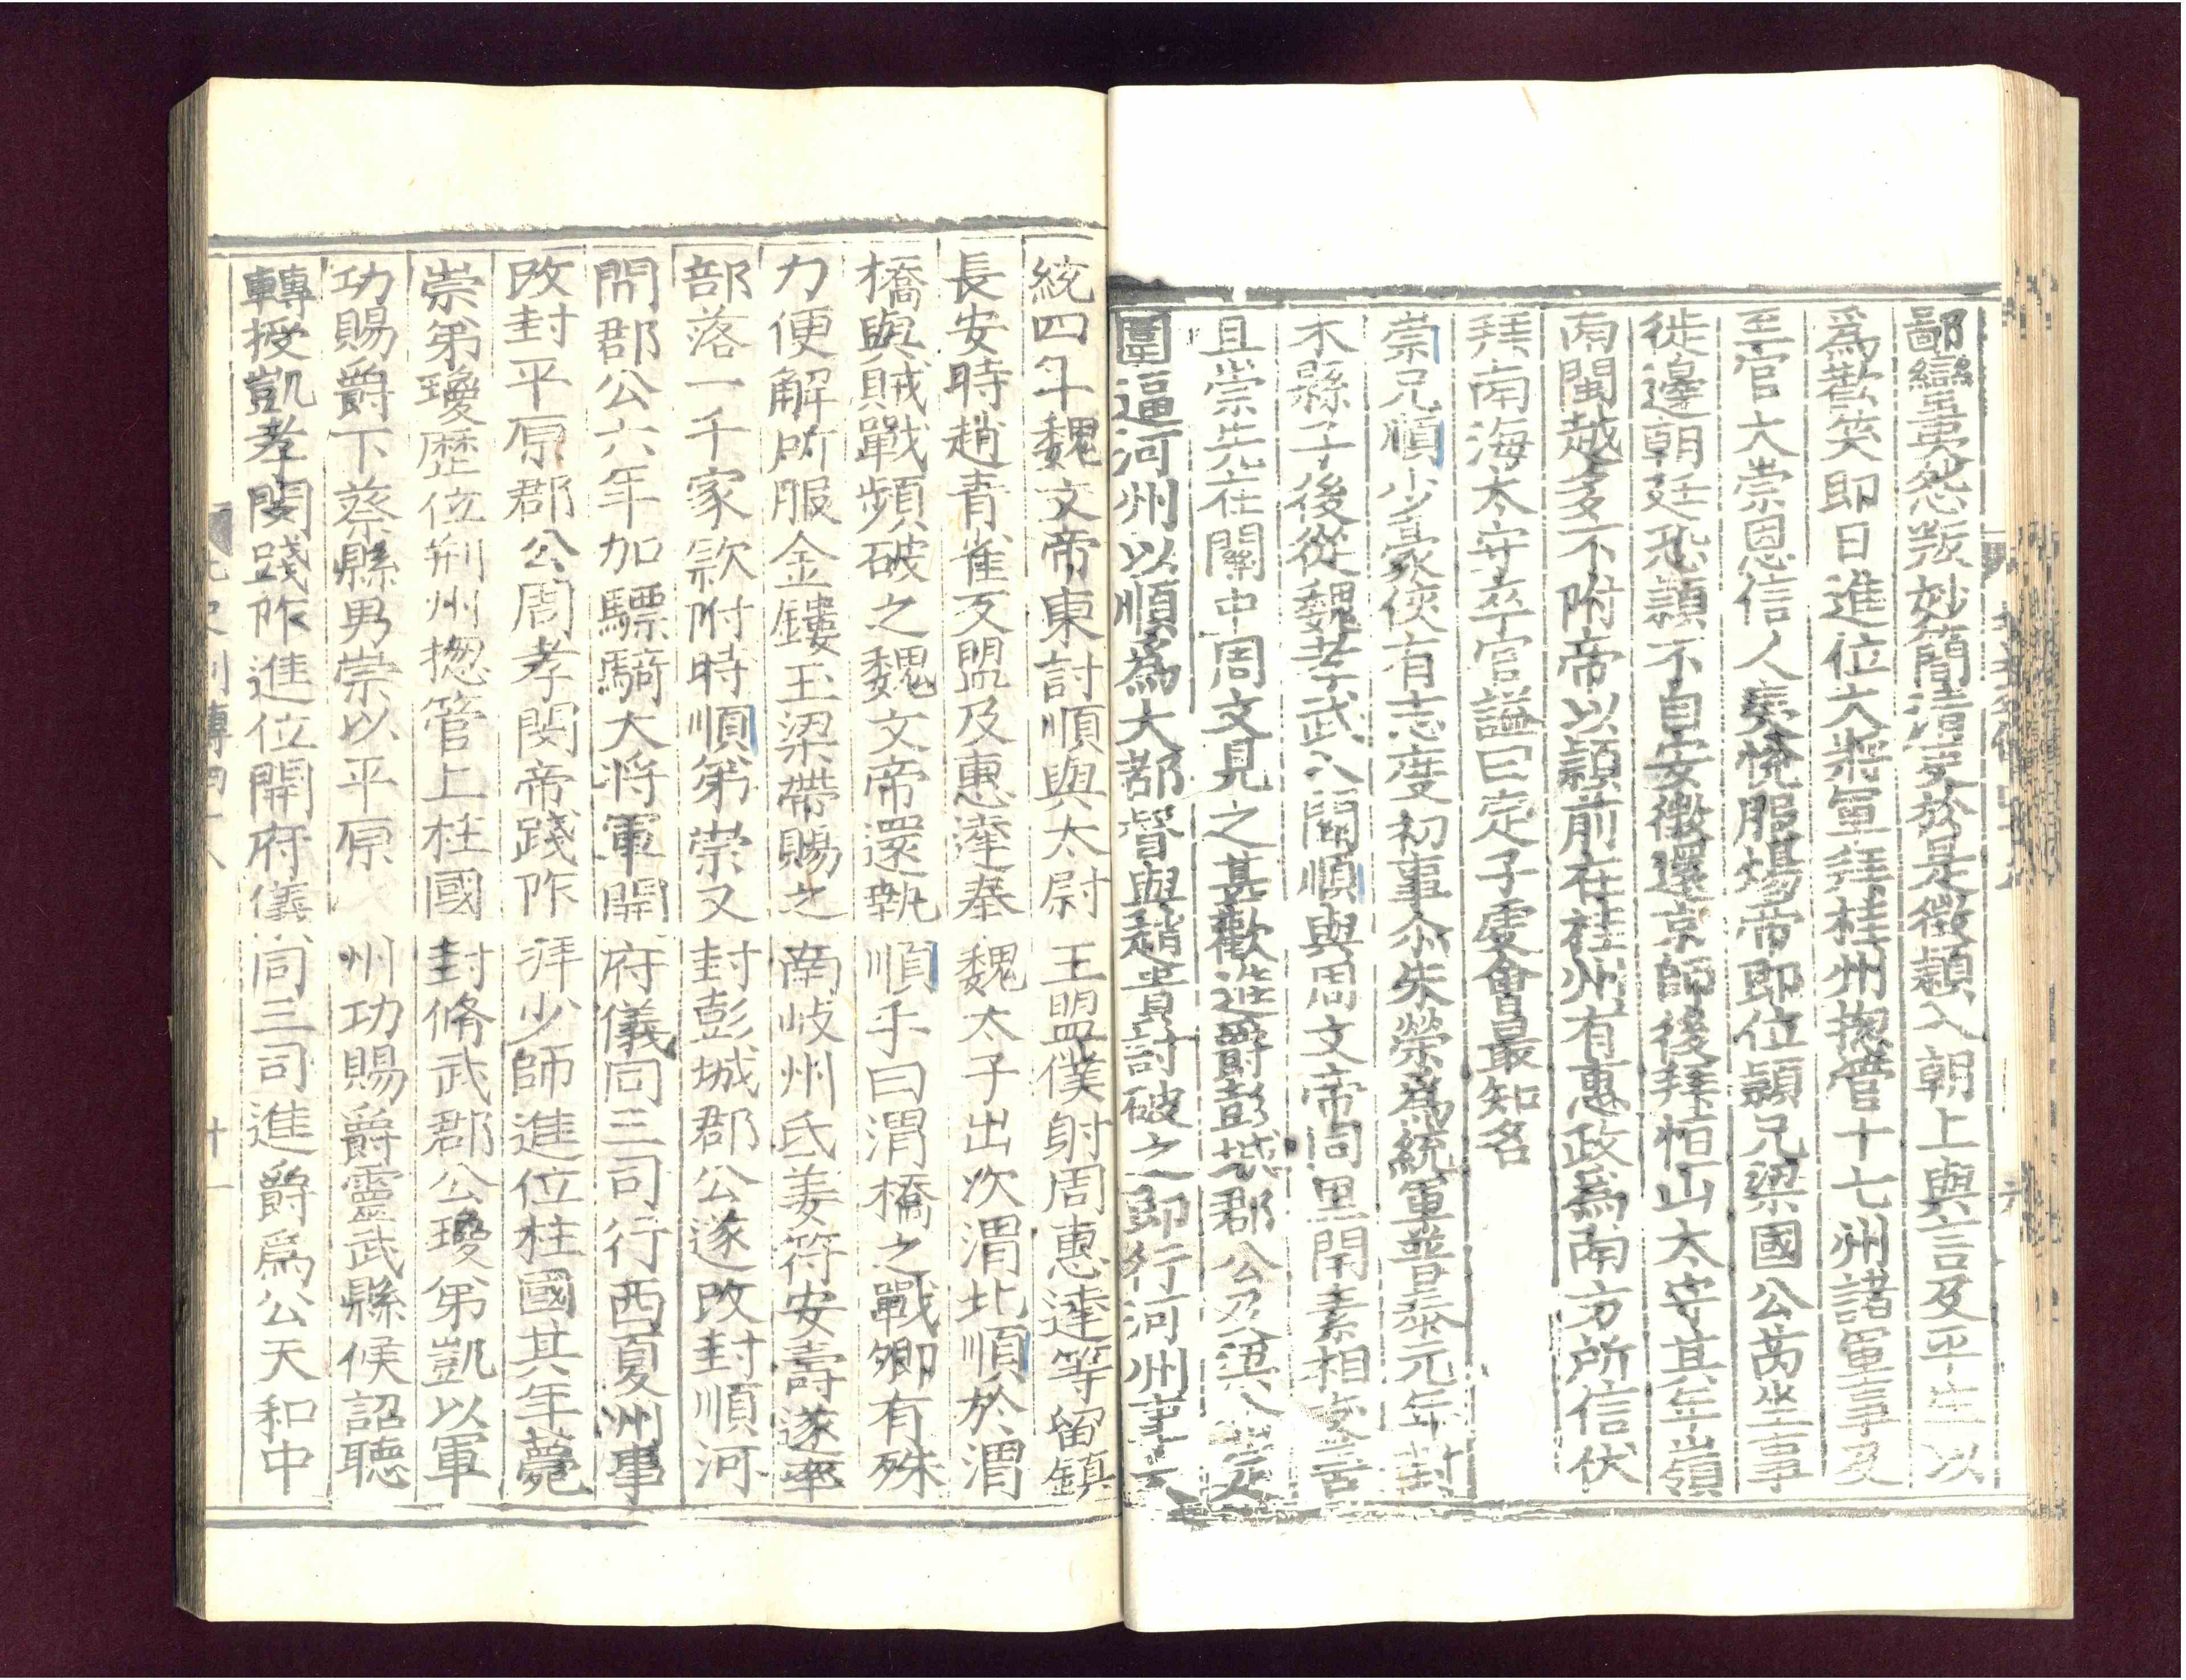 鄙蠻夷怨叛妙簡清吏於是徵頴入朝上與言及平生以
爲歡笑即日進位大將軍拜桂州揔管十七州諸軍事及
至官大崇恩信人夷悅服煬帝即位頴兄梁國公芮坐事
徙邊朝廷恐頴不自安徵還京師後拜恒山太守其年嶺
南閩越多不附帝以頴前在桂州有惠政爲南方所信伏
拜南海太守卒官謚曰定子虔會最知名
崇兄順少豪俠有志度初事尒朱榮爲統軍普泰元年封
木縣子後從魏孝武入關順與周文帝同里閈素相友善
且崇先在關中周文見之甚歡進爵彭城郡公及梁仚定
圍逼河州以順爲大都督與趙貴討破之即行河州事大
統四年魏文帝東討順與太尉王盟僕射周惠達等留鎮
長安時趙青雀反盟及惠達奉魏太子出次渭北順於渭
橋與賊戰頻破之魏文帝還執順手曰渭橋之戰卿有殊
力便解所服金鏤玉梁帶賜之南岐州氐姜符安壽遂率
部落一千家款附時順弟崇又封彭城郡公遂改封順河
間郡公六年加驃騎大將軍開府儀同三司行西夏州事
改封平原郡公周孝閔帝踐阼拜少師進位柱國其年薨
崇弟瓊歷位荊州揔管上柱國封脩武郡公瓊弟凱以軍
功賜爵下蔡縣男崇以平原州功賜爵靈武縣候詔聽
轉授凱孝閔踐阼進位開府儀同三司進爵爲公天和中
北史列傳四十八 十一